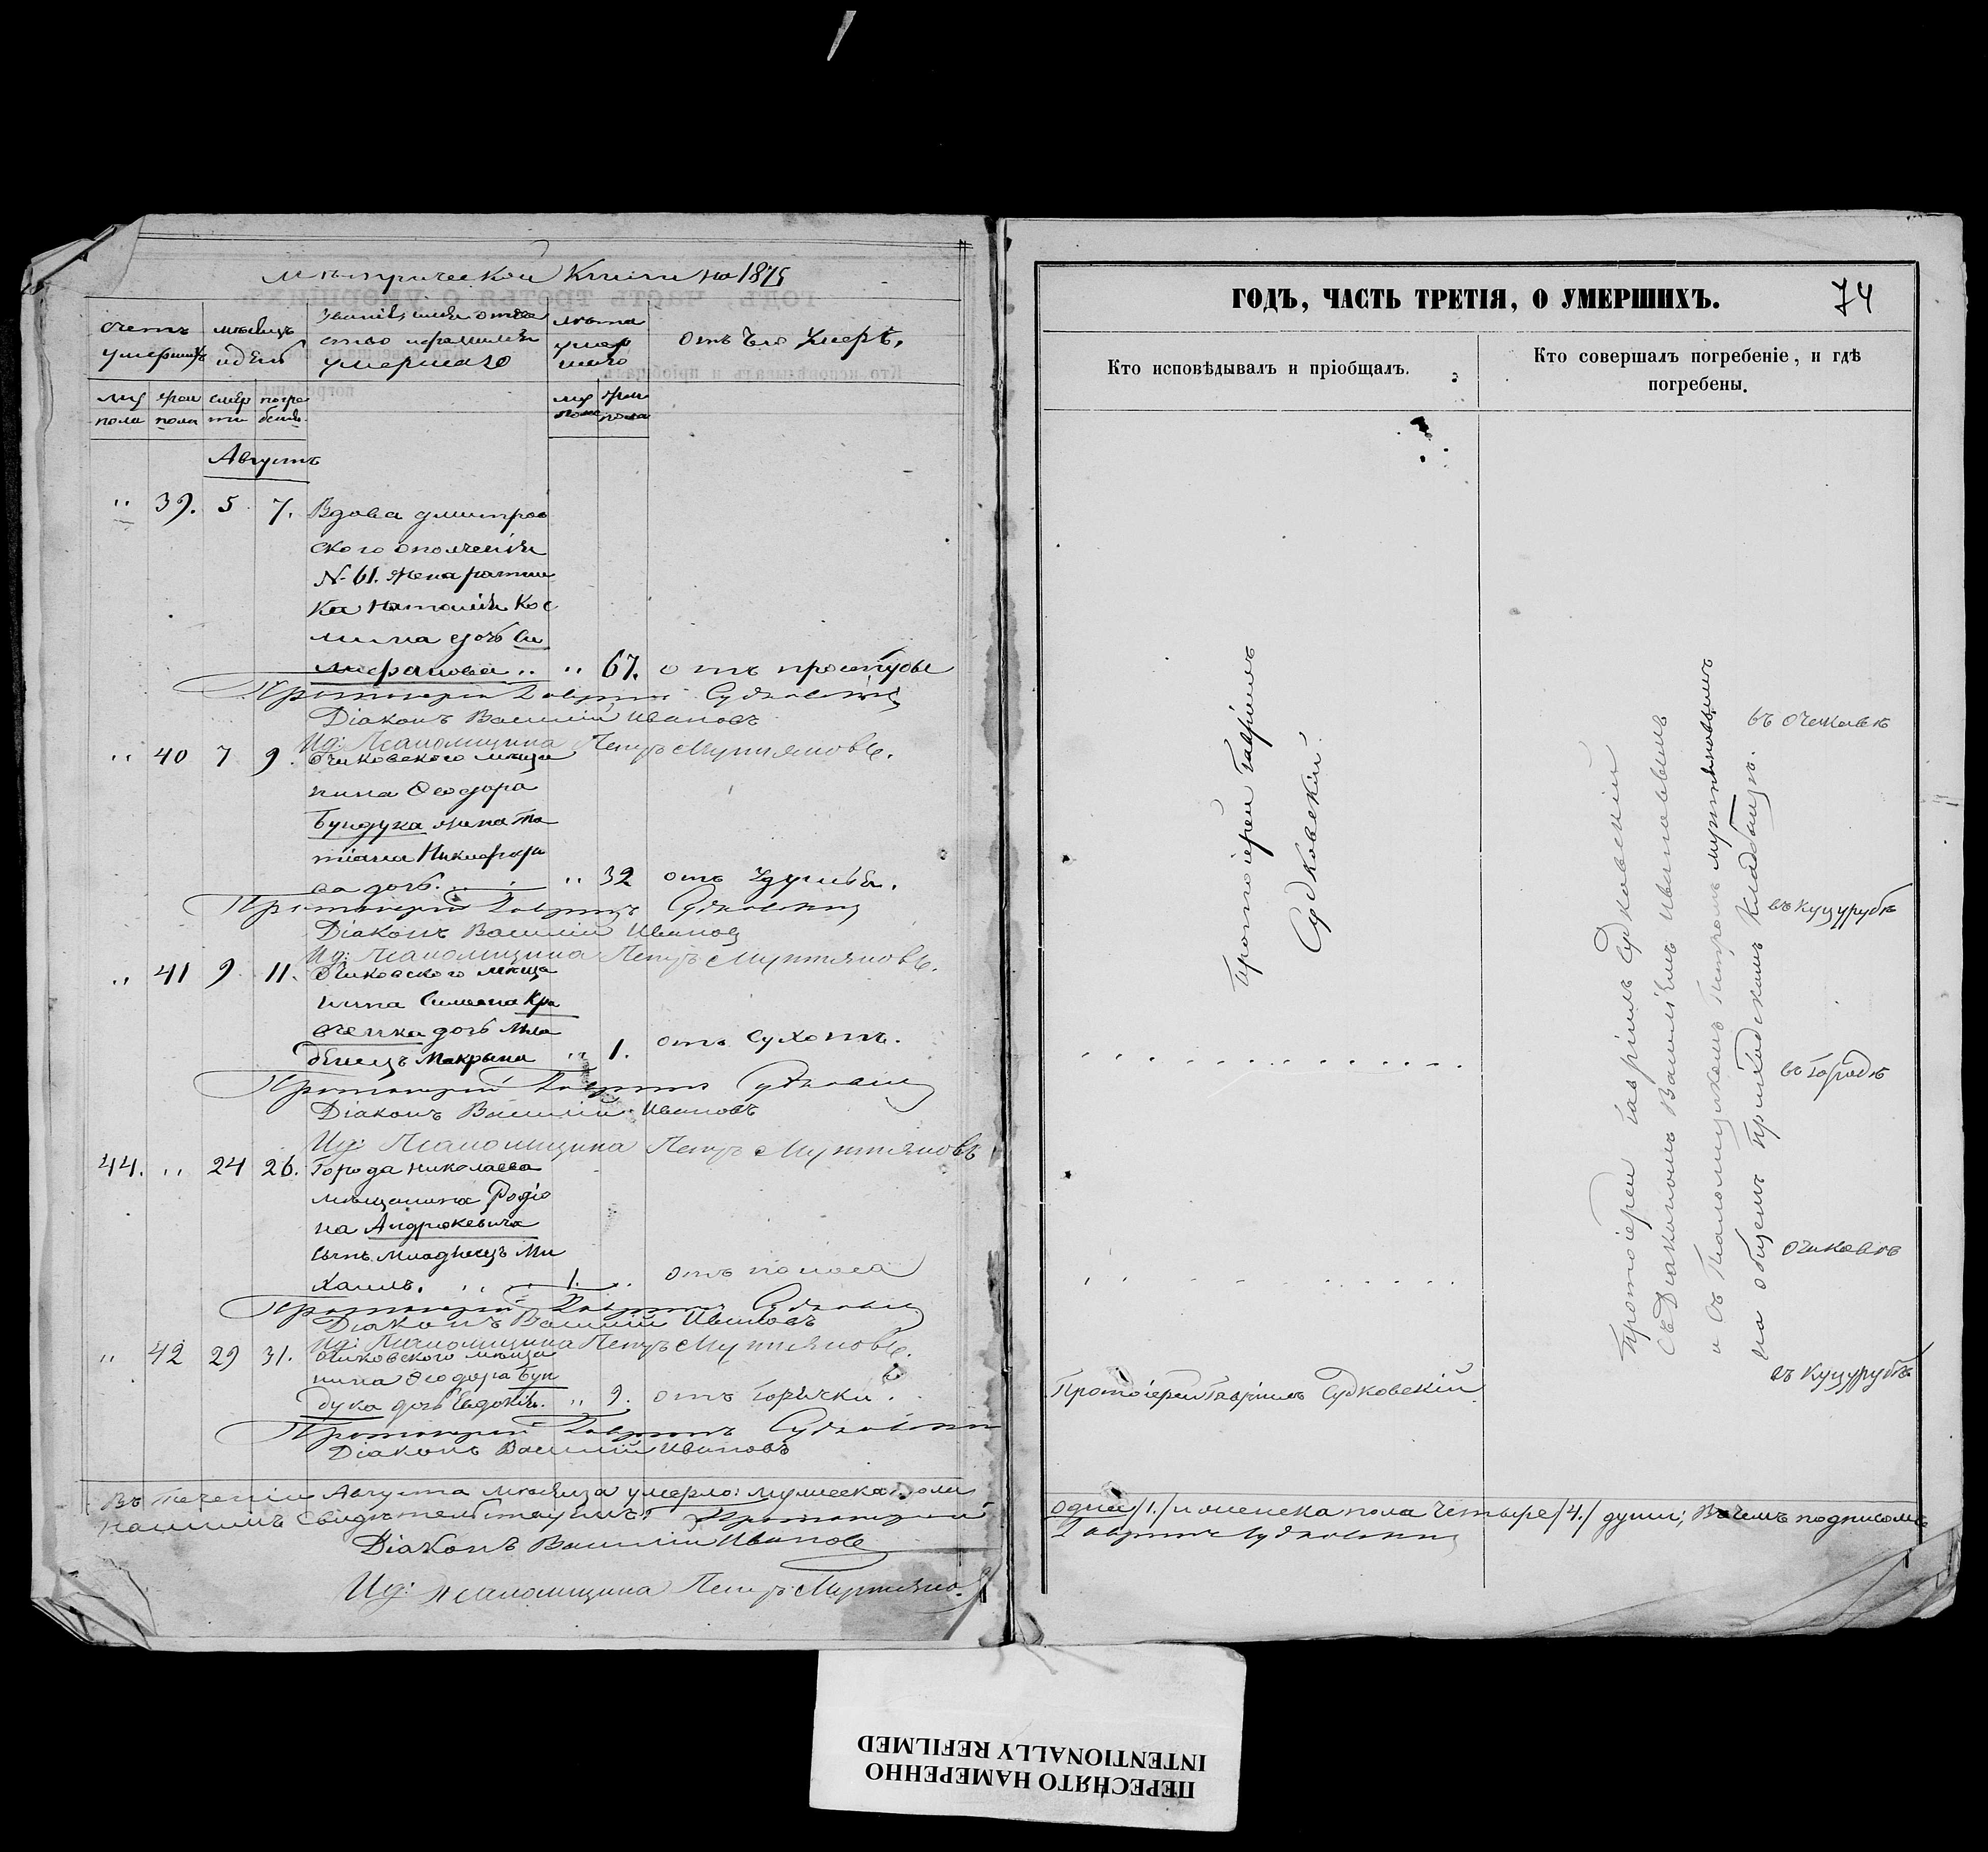 Метрической Книги на 1875
счетъ умершихъ
мѣсяцъ и день
Званіе, имя, отче
ство и фамилія
умершаго
лѣта
умер
шаго
отъ чего умеръ.
муж
пола
жен
пола
смер
ти
погре
бенія
муж
пола
жен
пола
Августъ
" 39. 5 7. Вдова дмитров
ского ополченія
№ 61. жена ратни
ка Наталія Кос
мина дочь
" 67. отъ простуды
Протоіерей Гавріилъ Судковскій
Діаконъ Василій Ивановъ
Ид: Псаломщика Петръ Мунтяновъ.
" 40 7 9. Очаковскаго мѣща
нина Ѳеодора
Бундука жена Та
тіана Никифоро
ва дочь. " 32 отъ удушья.
Протоіерей Гавріилъ Судковскій
Діаконъ Василій Ивановъ
Ид: Псаломщика Петръ Мунтяновъ.
" 41 9 11. Очаковскаго мѣща
нина Симеона Кра
вченка дочь мла
денецъ Макрина " 1. отъ сухотъ.
Протоіерей Гавріилъ Судковскій
Діаконъ Василій Ивановъ
Ид: Псаломщика Петръ Мунтяновъ
44. " 24 26. Города Николаева
мѣщанина Родіо
на Андрюкевича
сынъ младенецъ Ми
хаилъ. 1. " отъ поноса
Протоіерей Гавріилъ Судковскій
Діаконъ Василій Ивановъ
Ид: Псаломщика Петръ Мунтяновъ.
" 42 29 31. Очаковскаго мѣща
нина Ѳеодора Бун
дука дочь Евдокія. " 9. отъ горячки.
Протоіерей Гавріилъ Судковскій
Діаконъ Василій Ивановъ
Въ теченіи Августа мѣсяца умерло: мужеска поли
нашимъ свидѣтельствуемъ: Протоіерей
Діаконъ Василій Ивановъ
Ид: Псаломщика Петръ Мунтяно.
ГОДЪ, ЧАСТЬ ТРЕТІЯ, О УМЕРШИХЪ.
74
Кто исповѣдывалъ и пріобщалъ.
Кто совершалъ погребеніе, и гдѣ
погребены.
Протоіерей Гавріилъ
Судковскій
Протоіерей Гавріилъ Судковскій
съ Діакономъ Василіемъ Ивановымъ
и съ Псаломщикомъ Петромъ Мунтяновымъ
на общемъ приходскомъ кладбищѣ.
въ Очаковѣ
въ Куцурубѣ
въ городѣ
Очаковѣ
Протоіерей Гавріилъ Судковскій
въ Куцурубѣ
одна /1./ и женска пола четыре /4./ души; Въ чемъ подписомъ
Гавріилъ Судковскій
ПЕРЕСНЯТО НАМЕРЕННО
INTENTIONALLY REFILMED